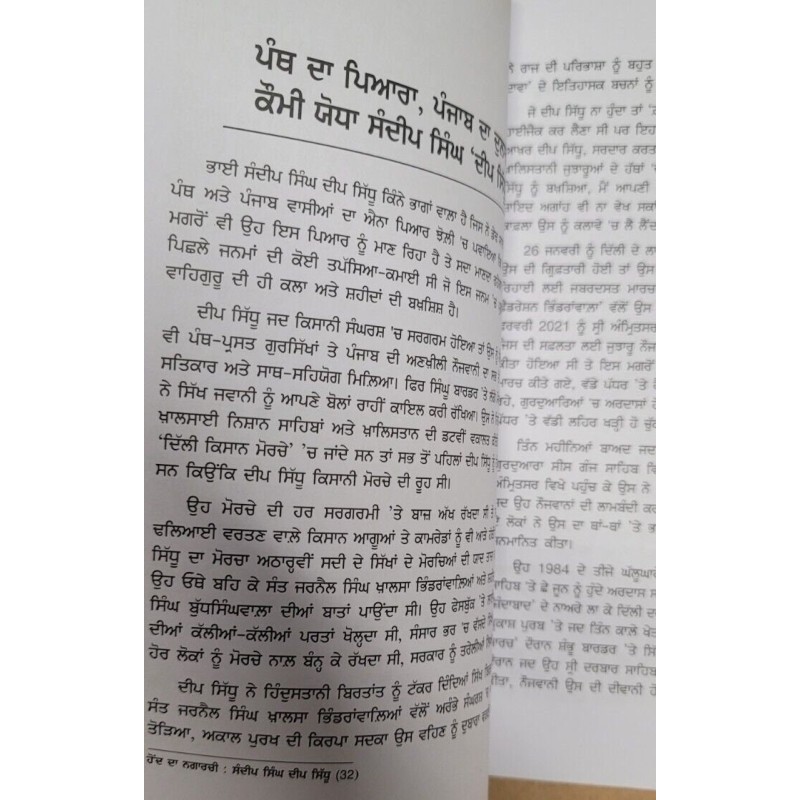 ਪੰਥ ਦਾ ਪਿਆਰਾ, ਪੰਜਾਬ ਦਾ
ਕੌਮੀ ਯੋਧਾ ਸੰਦੀਪ ਸਿੰਘ ‘ਦੀਪ
ਭਾਈ ਸੰਦੀਪ ਸਿੰਘ ਦੀਪ ਸਿੱਧੂ ਕਿੰਨੇ ਭਾਗਾਂ ਵਾਲਾ ਹੈ ਜਿਸ ਨੇ
ਪੰਥ ਅਤੇ ਪੰਜਾਬ ਵਾਸੀਆਂ ਦਾ ਐਨਾ ਪਿਆਰ ਝੋਲੀ ’ਚ ਪਵਾਇਆ
ਮਗਰੋਂ ਵੀ ਉਹ ਇਸ ਪਿਆਰ ਨੂੰ ਮਾਣ ਰਿਹਾ ਹੈ ਤੇ ਸਦਾ ਮਾਣਦਾ
ਪਿਛਲੇ ਜਨਮਾਂ ਦੀ ਕੋਈ ਤਪੱਸਿਆ-ਕਮਾਈ ਸੀ ਜੋ ਇਸ ਜਨਮ ’ਚ
ਵਾਹਿਗੁਰੂ ਦੀ ਹੀ ਕਲਾ ਅਤੇ ਸ਼ਹੀਦਾਂ ਦੀ ਬਖਸ਼ਿਸ਼ ਹੈ।
ਦੀਪ ਸਿੱਧੂ ਜਦ ਕਿਸਾਨੀ ਸੰਘਰਸ਼ ’ਚ ਸਰਗਰਮ ਹੋਇਆ ਤਾਂ ਉਸ
ਵੀ ਪੰਥ-ਪ੍ਰਸਤ ਗੁਰਸਿੱਖਾਂ ਤੇ ਪੰਜਾਬ ਦੀ ਅਣਖੀਲੀ ਨੌਜਵਾਨੀ ਦਾ
ਸਤਿਕਾਰ ਅਤੇ ਸਾਥ-ਸਹਿਯੋਗ ਮਿਲਿਆ। ਫਿਰ ਸਿੰਘੂ ਬਾਰਡਰ ’ਤੇ
ਨੇ ਸਿੱਖ ਜਵਾਨੀ ਨੂੰ ਆਪਣੇ ਬੋਲਾਂ ਰਾਹੀਂ ਕਾਇਲ ਕਰੀ ਰੱਖਿਆ। ਉਸ ਨੇ
ਖ਼ਾਲਸਾਈ ਨਿਸ਼ਾਨ ਸਾਹਿਬਾਂ ਅਤੇ ਖ਼ਾਲਿਸਤਾਨ ਦੀ ਡਟਵੀਂ ਵਕਾਲਤ
‘ਦਿੱਲੀ ਕਿਸਾਨ ਮੋਰਚੇ’ ’ਚ ਜਾਂਦੇ ਸਨ ਤਾਂ ਸਭ ਤੋਂ ਪਹਿਲਾਂ ਦੀਪ ਸਿੱਧੂ
ਸਨ ਕਿਉਂਕਿ ਦੀਪ ਸਿੱਧੂ ਕਿਸਾਨੀ ਮੋਰਚੇ ਦੀ ਰੂਹ ਸੀ।
ਉਹ ਮੋਰਚੇ ਦੀ ਹਰ ਸਰਗਰਮੀ ’ਤੇ ਬਾਜ਼ ਅੱਖ ਰੱਖਦਾ ਸੀ ਤੇ
ਢਲਿਆਈ ਵਰਤਣ ਵਾਲੇ ਕਿਸਾਨ ਆਗੂਆਂ ਤੇ ਕਾਮਰੇਡਾਂ ਨੂੰ ਵੀ
ਸਿੱਧੂ ਦਾ ਮੋਰਚਾ ਅਠਾਰ੍ਹਵੀਂ ਸਦੀ ਦੇ ਸਿੱਖਾਂ ਦੇ ਮੋਰਚਿਆਂ ਦੀ ਯਾਦ
ਉਹ ਓਥੇ ਬਹਿ ਕੇ ਸੰਤ ਜਰਨੈਲ ਸਿੰਘ ਖ਼ਾਲਸਾ ਭਿੰਡਰਾਂਵਾਲਿਆਂ ਅਤੇ
ਸਿੰਘ ਬੁੱਧਸਿੰਘਵਾਲਾ ਦੀਆਂ ਬਾਤਾਂ ਪਾਉਂਦਾ ਸੀ। ਉਹ ਫੇਸਬੁੱਕ ’ਤੇ
ਦੀਆਂ ਕੱਲੀਆਂ-ਕੱਲੀਆਂ ਪਰਤਾਂ ਖੋਲ੍ਹਦਾ ਸੀ, ਸੰਸਾਰ ਭਰ ’ਚ ਵੱਸਦੇ
ਹੋਰ ਲੋਕਾਂ ਨੂੰ ਮੋਰਚੇ ਨਾਲ ਬੰਨ੍ਹ ਕੇ ਰੱਖਦਾ ਸੀ, ਸਰਕਾਰ ਨੂੰ
ਦੀਪ ਸਿੱਧੂ ਨੇ ਹਿੰਦੁਸਤਾਨੀ ਬਿਰਤਾਂਤ ਨੂੰ ਟੱਕਰ ਦਿੰਦਿਆਂ ਸਿੱਖ
ਸੰਤ ਜਰਨੈਲ ਸਿੰਘ ਖ਼ਾਲਸਾ ਭਿੰਡਰਾਂਵਾਲਿਆਂ ਵੱਲੋਂ ਅਰੰਭੇ ਸੰਘਰਸ਼
ਤੋੜਿਆ, ਅਕਾਲ ਪੁਰਖ ਦੀ ਕਿਰਪਾ ਸਦਕਾ ਉਸ ਵਹਿਣ ਨੂੰ ਦੁਬਾਰਾ
ਹੋਂਦ ਦਾ ਨਗਾਰਚੀ : ਸੰਦੀਪ ਸਿੰਘ ਦੀਪ ਸਿੱਧੂ (32)
ਰਾਜ ਦੀ ਪਰਿਭਾਸ਼ਾ ਨੂੰ ਬਹੁਤ
ਦੇ ਇਤਿਹਾਸਕ ਬਚਨਾਂ ਨੂੰ
ਜੇ ਦੀਪ ਸਿੱਧੂ ਨਾ ਹੁੰਦਾ ਤਾਂ
ਕਰ ਲੈਣਾ ਸੀ ਪਰ ਇਹ
ਦੀਪ ਸਿੱਧੂ, ਸਰਦਾਰ ਕਰਤਾ
ਜੁਝਾਰੂਆਂ ਦੇ ਹੱਥਾਂ ’ਚ
ਨੂੰ ਬਖਸ਼ਿਆ, ਮੈਂ ਆਪਣੀ
ਅਗਾਂਹ ਵੀ ਨਾ ਵੇਖ ਸਕਾਂ
ਉਸ ਨੂੰ ਕਲਾਵੇ ’ਚ ਲੈ
26 ਜਨਵਰੀ ਨੂੰ ਦਿੱਲੀ ਦੇ
ਦੀ ਗ੍ਰਿਫ਼ਤਾਰੀ ਹੋਈ ਤਾਂ ਉਸ
ਲਈ ਜਬਰਦਸਤ ਮਾਰਚ
ਭਿੰਡਰਾਂਵਾਲਾ’ ਵੱਲੋਂ ਉਸ
2021 ਨੂੰ ਸ੍ਰੀ ਅੰਮ੍ਰਿਤਸਰ
ਦੀ ਸਫ਼ਲਤਾ ਲਈ ਜੁਝਾਰੂ
ਹੋਇਆ ਸੀ ਤੇ ਇਸ ਮਗਰੋਂ
ਕੀਤੇ ਗਏ, ਵੱਡੇ ਪੱਧਰ ’ਤੇ
ਗੁਰਦੁਆਰਿਆਂ ’ਚ ਅਰਦਾਸਾਂ
’ਤੇ ਵੱਡੀ ਲਹਿਰ ਖੜ੍ਹੀ ਹੋ
ਤਿੰਨ ਮਹੀਨਿਆਂ ਬਾਅਦ ਜਦ
ਸੀਸ ਗੰਜ ਸਾਹਿਬ
ਵਿਖੇ ਪਹੁੰਚ ਕੇ ਉਸ ਨੇ
ਉਹ ਨੌਜਵਾਨਾਂ ਦੀ ਲਾਮਬੰਦੀ
ਲੋਕਾਂ ਨੇ ਉਸ ਦਾ ਥਾਂ-ਥਾਂ ’ਤੇ
ਕੀਤਾ।
ਉਹ 1984 ਦੇ ਤੀਜੇ ਘੱਲੂਘਾਰੇ
’ਤੇ ਛੇ ਜੂਨ ਨੂੰ ਹੁੰਦੇ ਅਰਦਾਸ
ਦੇ ਨਾਅਰੇ ਲਾ ਕੇ ਦਿੱਲੀ ਦਾ
ਪੁਰਬ ’ਤੇ ਜਦ ਤਿੰਨ ਕਾਲੇ
ਦੌਰਾਨ ਸ਼ੰਭੂ ਬਾਰਡਰ ’ਤੇ
ਜਦ ਉਹ ਸ੍ਰੀ ਦਰਬਾਰ ਸਾਹਿਬ
ਨੌਜਵਾਨੀ ਉਸ ਦੀ ਦੀਵਾਨੀ